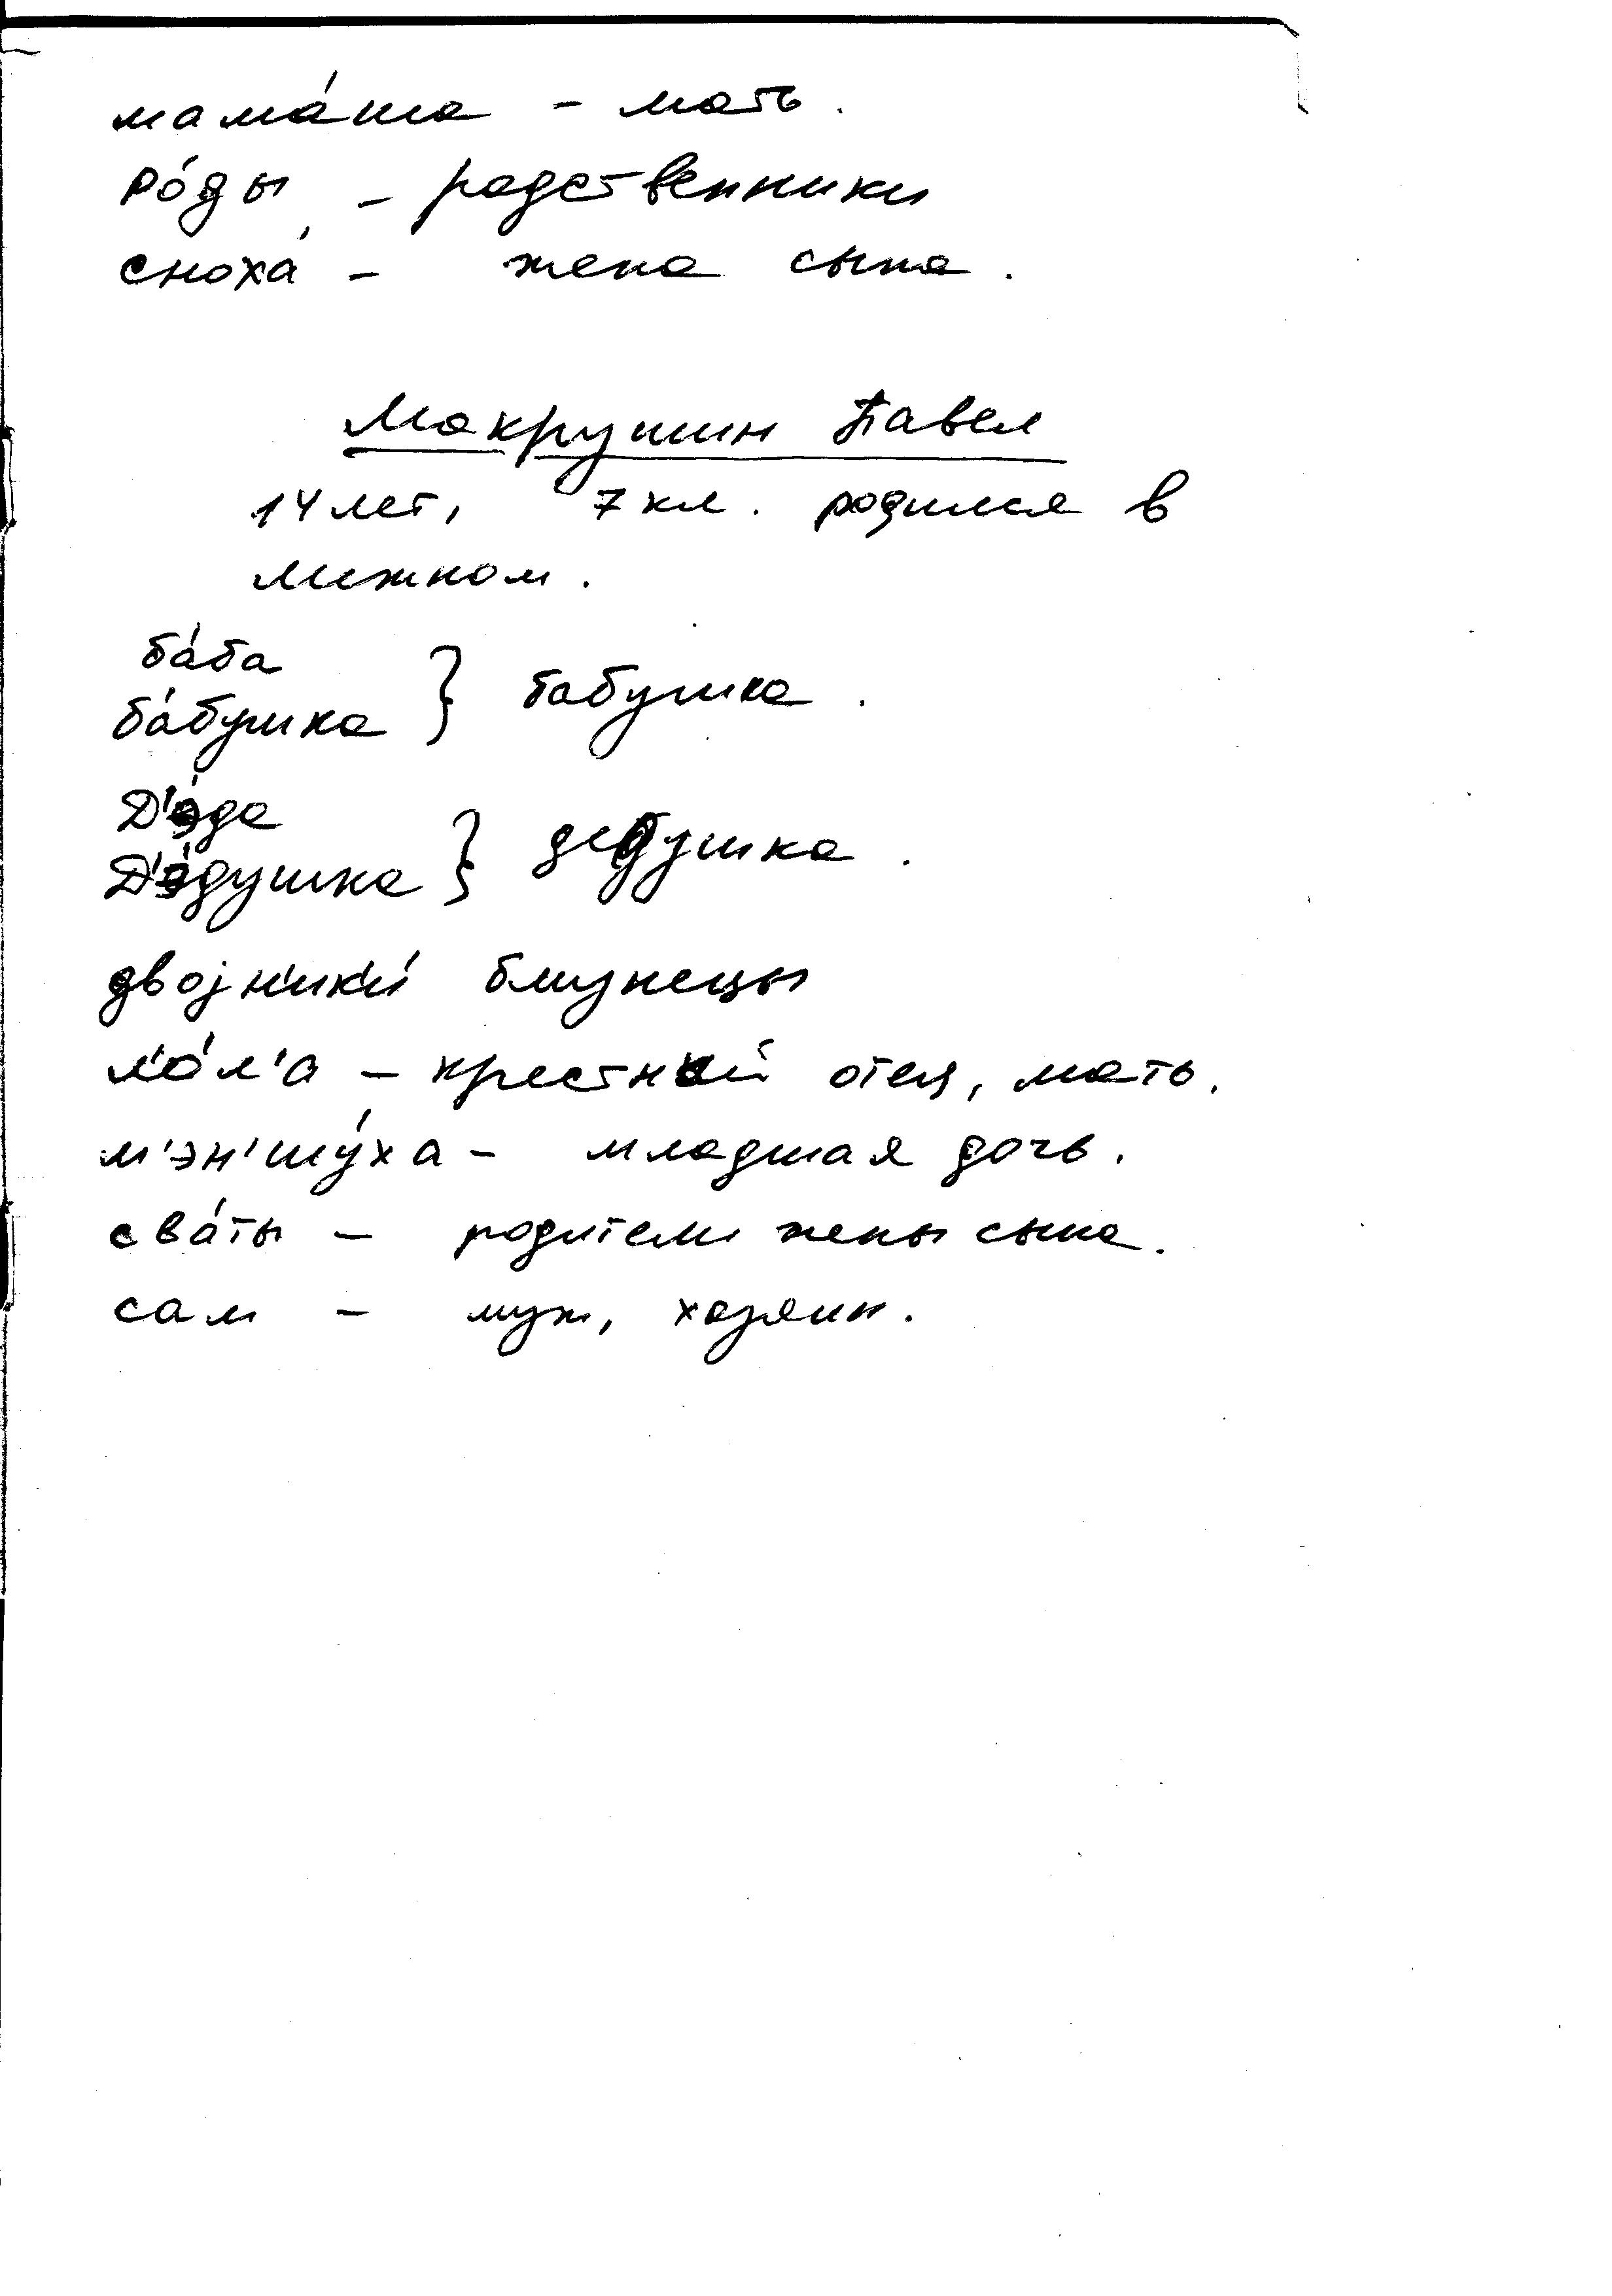 мама́ша – мать.
ро́ды – родственники
сноха́ – жена сына.
Мокрушин Павел
14 лет, 7 кл. родился в
Межном.
ба́ба
ба́бушка } бабушка.
д'э́да
д'э́душка } дедушка.
двојн'ик'и́ близнецы
л'о́л'а – крестный отец, мать.
м'эн'шу́ха – младшая дочь.
сва́ты – родители жены сына.
сам – муж, хозяин.